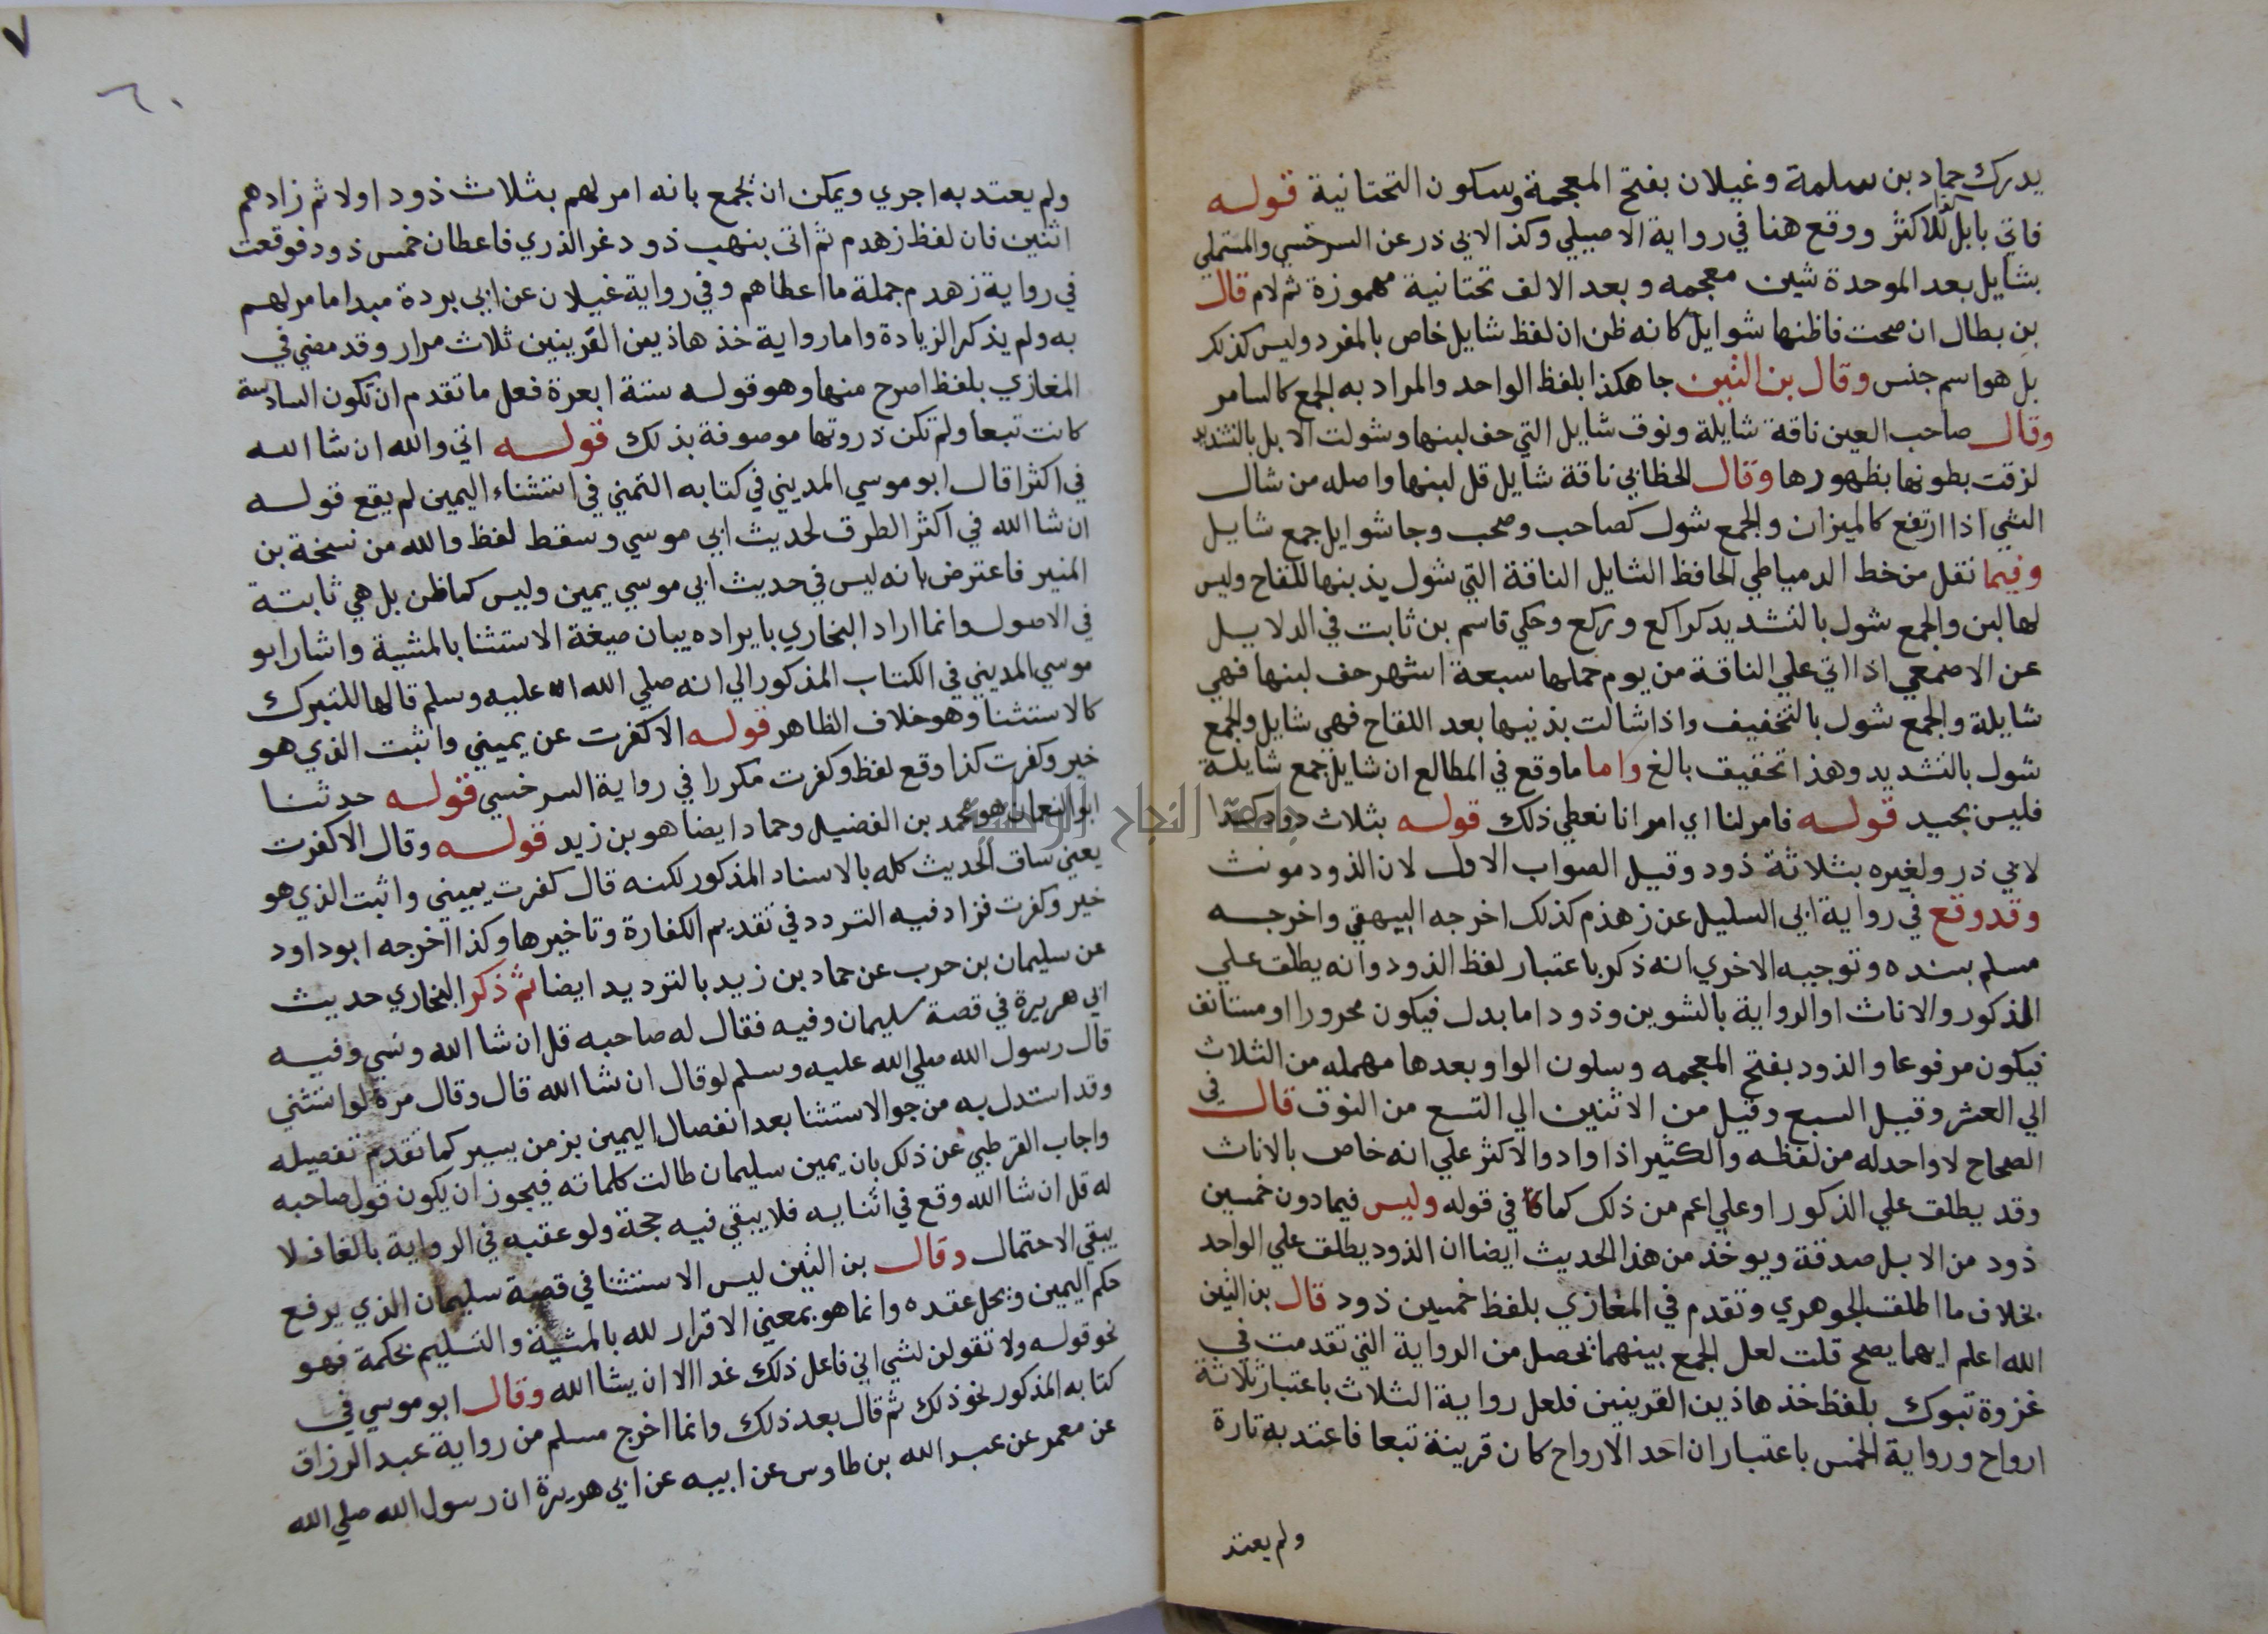 يدرك حماد بن سلمة وغيلان بفتح المعجمة وسكون التحتانية قوله
فاتي بابل كذا للاكثر ووقع هنا في رواية الاصيلي وكذا لابي ذر عن السرخسي والمستملي
بشايل بعد الموحدة شين معجمه وبعد الالف تحتانية مهموزة ثم لام قال
بن بطال ان صحت فاظنها شوايل كانه ظن ان لفظ شايل خاص بالمفرد وليس كذلك
بل هو اسم جنس وقال بن التين جا هكذا بلفظ الواحد والمراد به الجمع كالسامر
وقال صاحب العين ناقة شايلة ونوق شايل التي حف لبنها وشولت الابل بالتشديد
لزقت بطونها بظهورها وقال الخطابي ناقة شايل قل لبنها واصله من شال
الشي اذا ارتفع كالميزان والجمع شول كصاحب وصحب وجا شوايل جمع شايل
وفيما نقل من خط الدمياطي الحافظ الشايل الناقة التي شول بذنبها للقاح وليس
لها لبن والجمع شول بالتشديد كراكع وركع وحكي قاسم بن ثابت في الدلايل
عن الاصمعي اذا اتي علي الناقة من يوم حملها سبعة اشهر حف لبنها فهي
شايلة والجمع شول بالتخفيف واذا شالت بذنبها بعد اللقاح فهي شايل والجمع
شول بالتشديد وهذا تحقيق بالغ واما ما وقع في المطالع ان شايل جمع شايلة
فليس بجيد قوله فامر لنا اي امر انا نعطي ذلك قوله بثلاث ذود كذا
لابي ذر ولغيره بثلاثة ذود وقيل الصواب الاول لان الذود مونث
وقد وقع في رواية ابي السليل عن زهدم كذلك اخرجه البيهقي واخرجه
مسلم بسنده وتوجيه الاخري انه ذكر باعتبار لفظ الذود وانه يطلق علي
المذكور والاناث او الرواية بالتنوين وذود اما بدل فيكون مجرورا او مستانف
فيكون مرفوعا والذود بفتح المعجمه وسكون الواو بعدها مهمله من الثلاث
الي العشر وقيل السبع وقيل من الاثنين الي التسع من النوق قال في
الصحاح لا واحد له من لفظه والكثير اذاواد والاكثر علي انه خاص بالاناث
وقد يطلق علي الذكور او علي اعم من ذلك كما في قوله وليس فيما دون خمسين
ذود من الابل صدقة ويوخذ من هذا الحديث ايضا ان الذود يطلق علي الواحد
بخلاف ما اطلق الجوهري وتقدم في المغازي بلفظ خمسين ذود قال بن التين
الله اعلم ايهما يصح قلت لعل الجمع بينهما يحصل من الرواية التي تقدمت في
غزوة تبوك بلفظ خذ هاذين القرينين فلعل رواية الثلاث باعتبار ثلاثة
ارواح ورواية الخمس باعتبار ان احد الارواح كان قرينة تبعا فاعتد به تارة
ولم يعتد
٦٠
ولم يعتد به اجري ويمكن ان نجمع بانه امر لهم بثلاث ذود اولا ثم زادهم
اثنين فان لفظ زهدم ثم اتي بنهب ذود غر الذري فاعطان خمس ذود فوقعت
في رواية زهدم جملة ما اعطاهم وفي رواية غيلان عن ابي بردة مبدا ما مر لهم
به ولم يذكر الزيادة واما رواية خذ هاذين القرينين ثلاث مرار وقد مضي في
المغازي بلفظ اصرح منها وهو قوله ستة ابعرة فعل ما تقدم ان تكون السادسة
كانت تبعا ولم تكن ذروتها موصوفة بذلك قوله اني والله ان شا الله
في اكثرا قال ابو موسي المديني في كتابه التمني في استثناء اليمين لم يقع قوله
ان شا الله في اكثر الطرق لحديث ابي موسي وسقط لفظ والله من نسخة بن
المنير فاعترض بانه ليس في حديث ابي موسي يمين وليس كما ظن بل هي ثابتة
في الاصول وانما اراد البخاري بايراده بيان صيغة الاستثنا بالمشية واشار ابو
موسي المديني في الكتاب المذكور الي انه صلي الله عليه وسلم قالها للتبرك
كالاستثنا وهو خلاف الظاهر قوله الا كفرت عن يميني واثبت الذي هو
خير وكفرت كذا وقع لفظ وكفرت مكررا في رواية السرخسي قوله حدثنا
ابو النعمان هو محمد بن الفضيل وحماد ايضا هو بن زيد قوله وقال الا كفرت
يعني ساق الحديث كله بالاسناد المذكور لكنه قال كفرت يميني واثبت الذي هو
خير وكفرت فزاد فيه التردد في تقديم الكفارة وتاخيرها وكذا اخرجه ابو داود
عن سليمان بن حرب عن حماد بن زيد بالترديد ايضا ثم ذكر البخاري حديث
ابي هريرة في قصة سليمان وفيه فقال له صاحبه قل ان شا الله ونسي وفيه
قال رسول الله صلي الله عليه وسلم لو قال ان شا الله قال وقال مرة لو استثني
وقد استدل به من جو الاستثنا بعد انفصال اليمين بزمن يسير كما تقدم تفصيله
واجاب القرطبي عن ذلك بان يمين سليمان طالت كلماته فيجوز ان يكون قول صاحبه
له قل ان شا الله وقع في اثنايه فلا يبقي فيه حجة ولو عقبه في الرواية بالفا فلا
يبقي الاحتمال وقال بن التين ليس الاستثنا في قصة سليمان الذي يرفع
حكم اليمين ونحل عقده وانما هو بمعني الاقرار لله بالمشية والتسليم بحكمة فهو
نحو قوله ولا تقولن لشي اني فاعل ذلك غدا الا ان يشا الله وقال ابو موسي في
كتابه المذكور نحو ذلك ثم قال بعد ذلك وانما اخرج مسلم من رواية عبد الرزاق
عن معمر عن عبد الله بن طاوس عن ابيه عن ابي هريرة ان رسول الله صلي الله
جامعة النجاح الوطنية